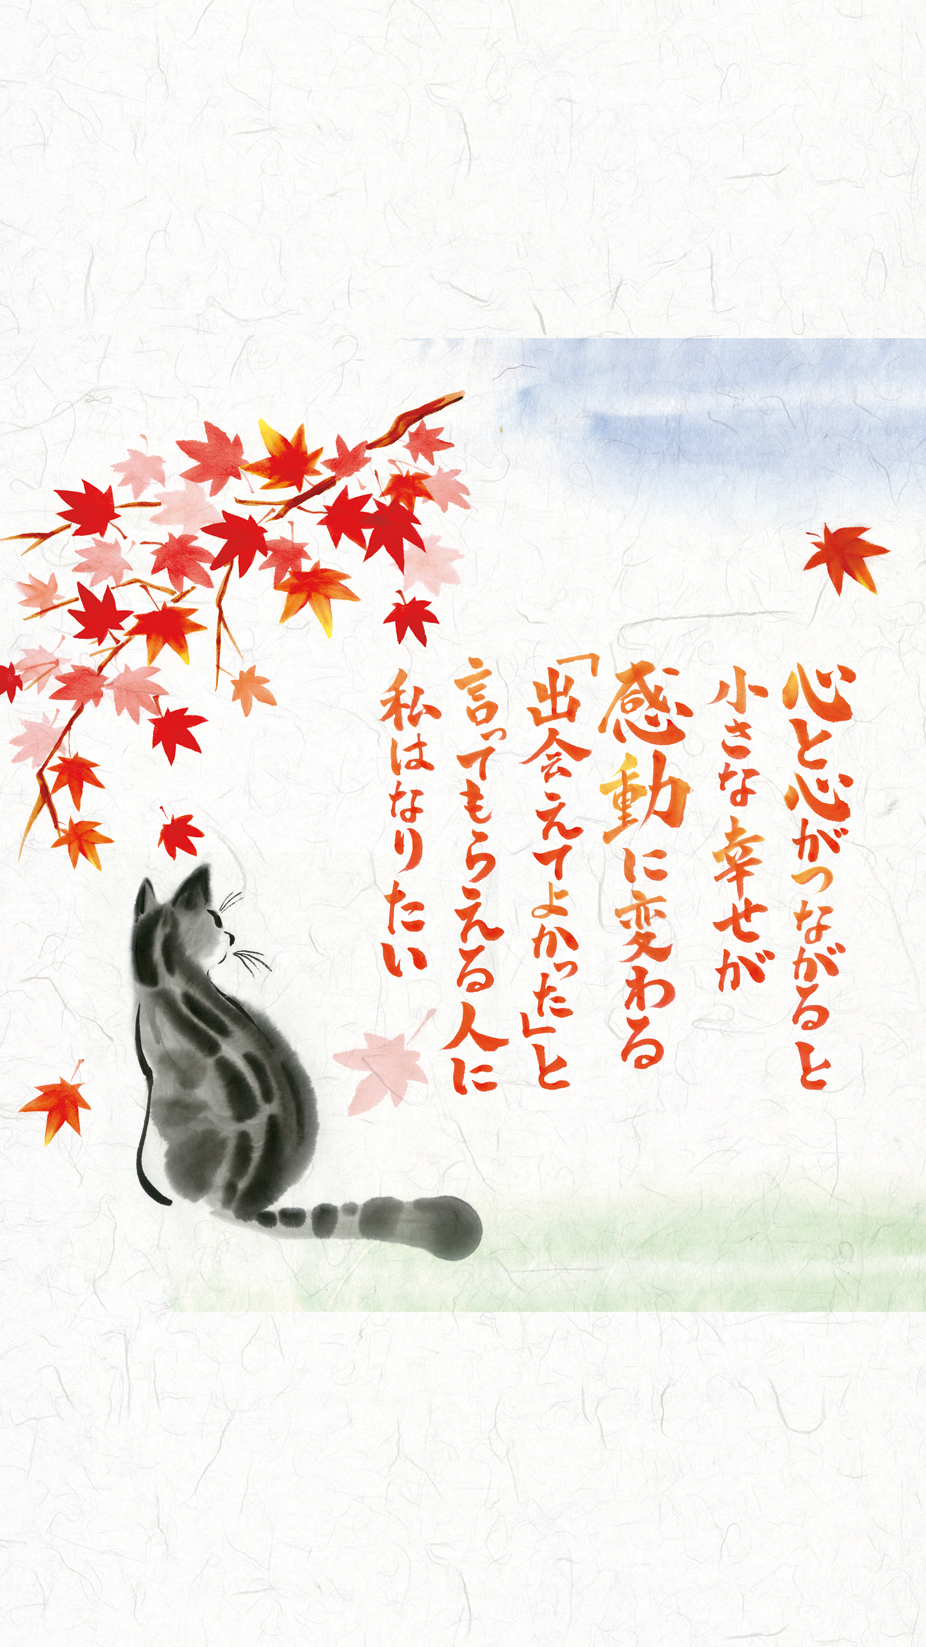 心と心がつながると
小さな幸せが
感動に変わる
「出会えてよかった」と
言ってもらえる人に
私はなりたい